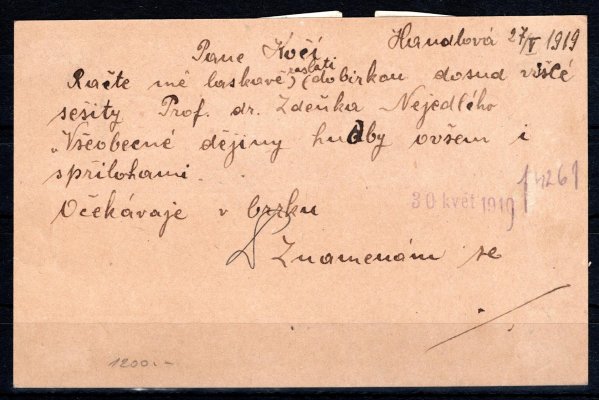 Handlová 27/V 1919
Pane Kočí
zaslati
Račte mě laskavě, (dobírkou dosud višlé
sešity Prof. dr. Zdeňka Nejedlého
„Všeobecné dějiny hudby ovšem i
spřílohami.
30 květ 1919
Očekávaje v brzku
Znamenám se
1200.-